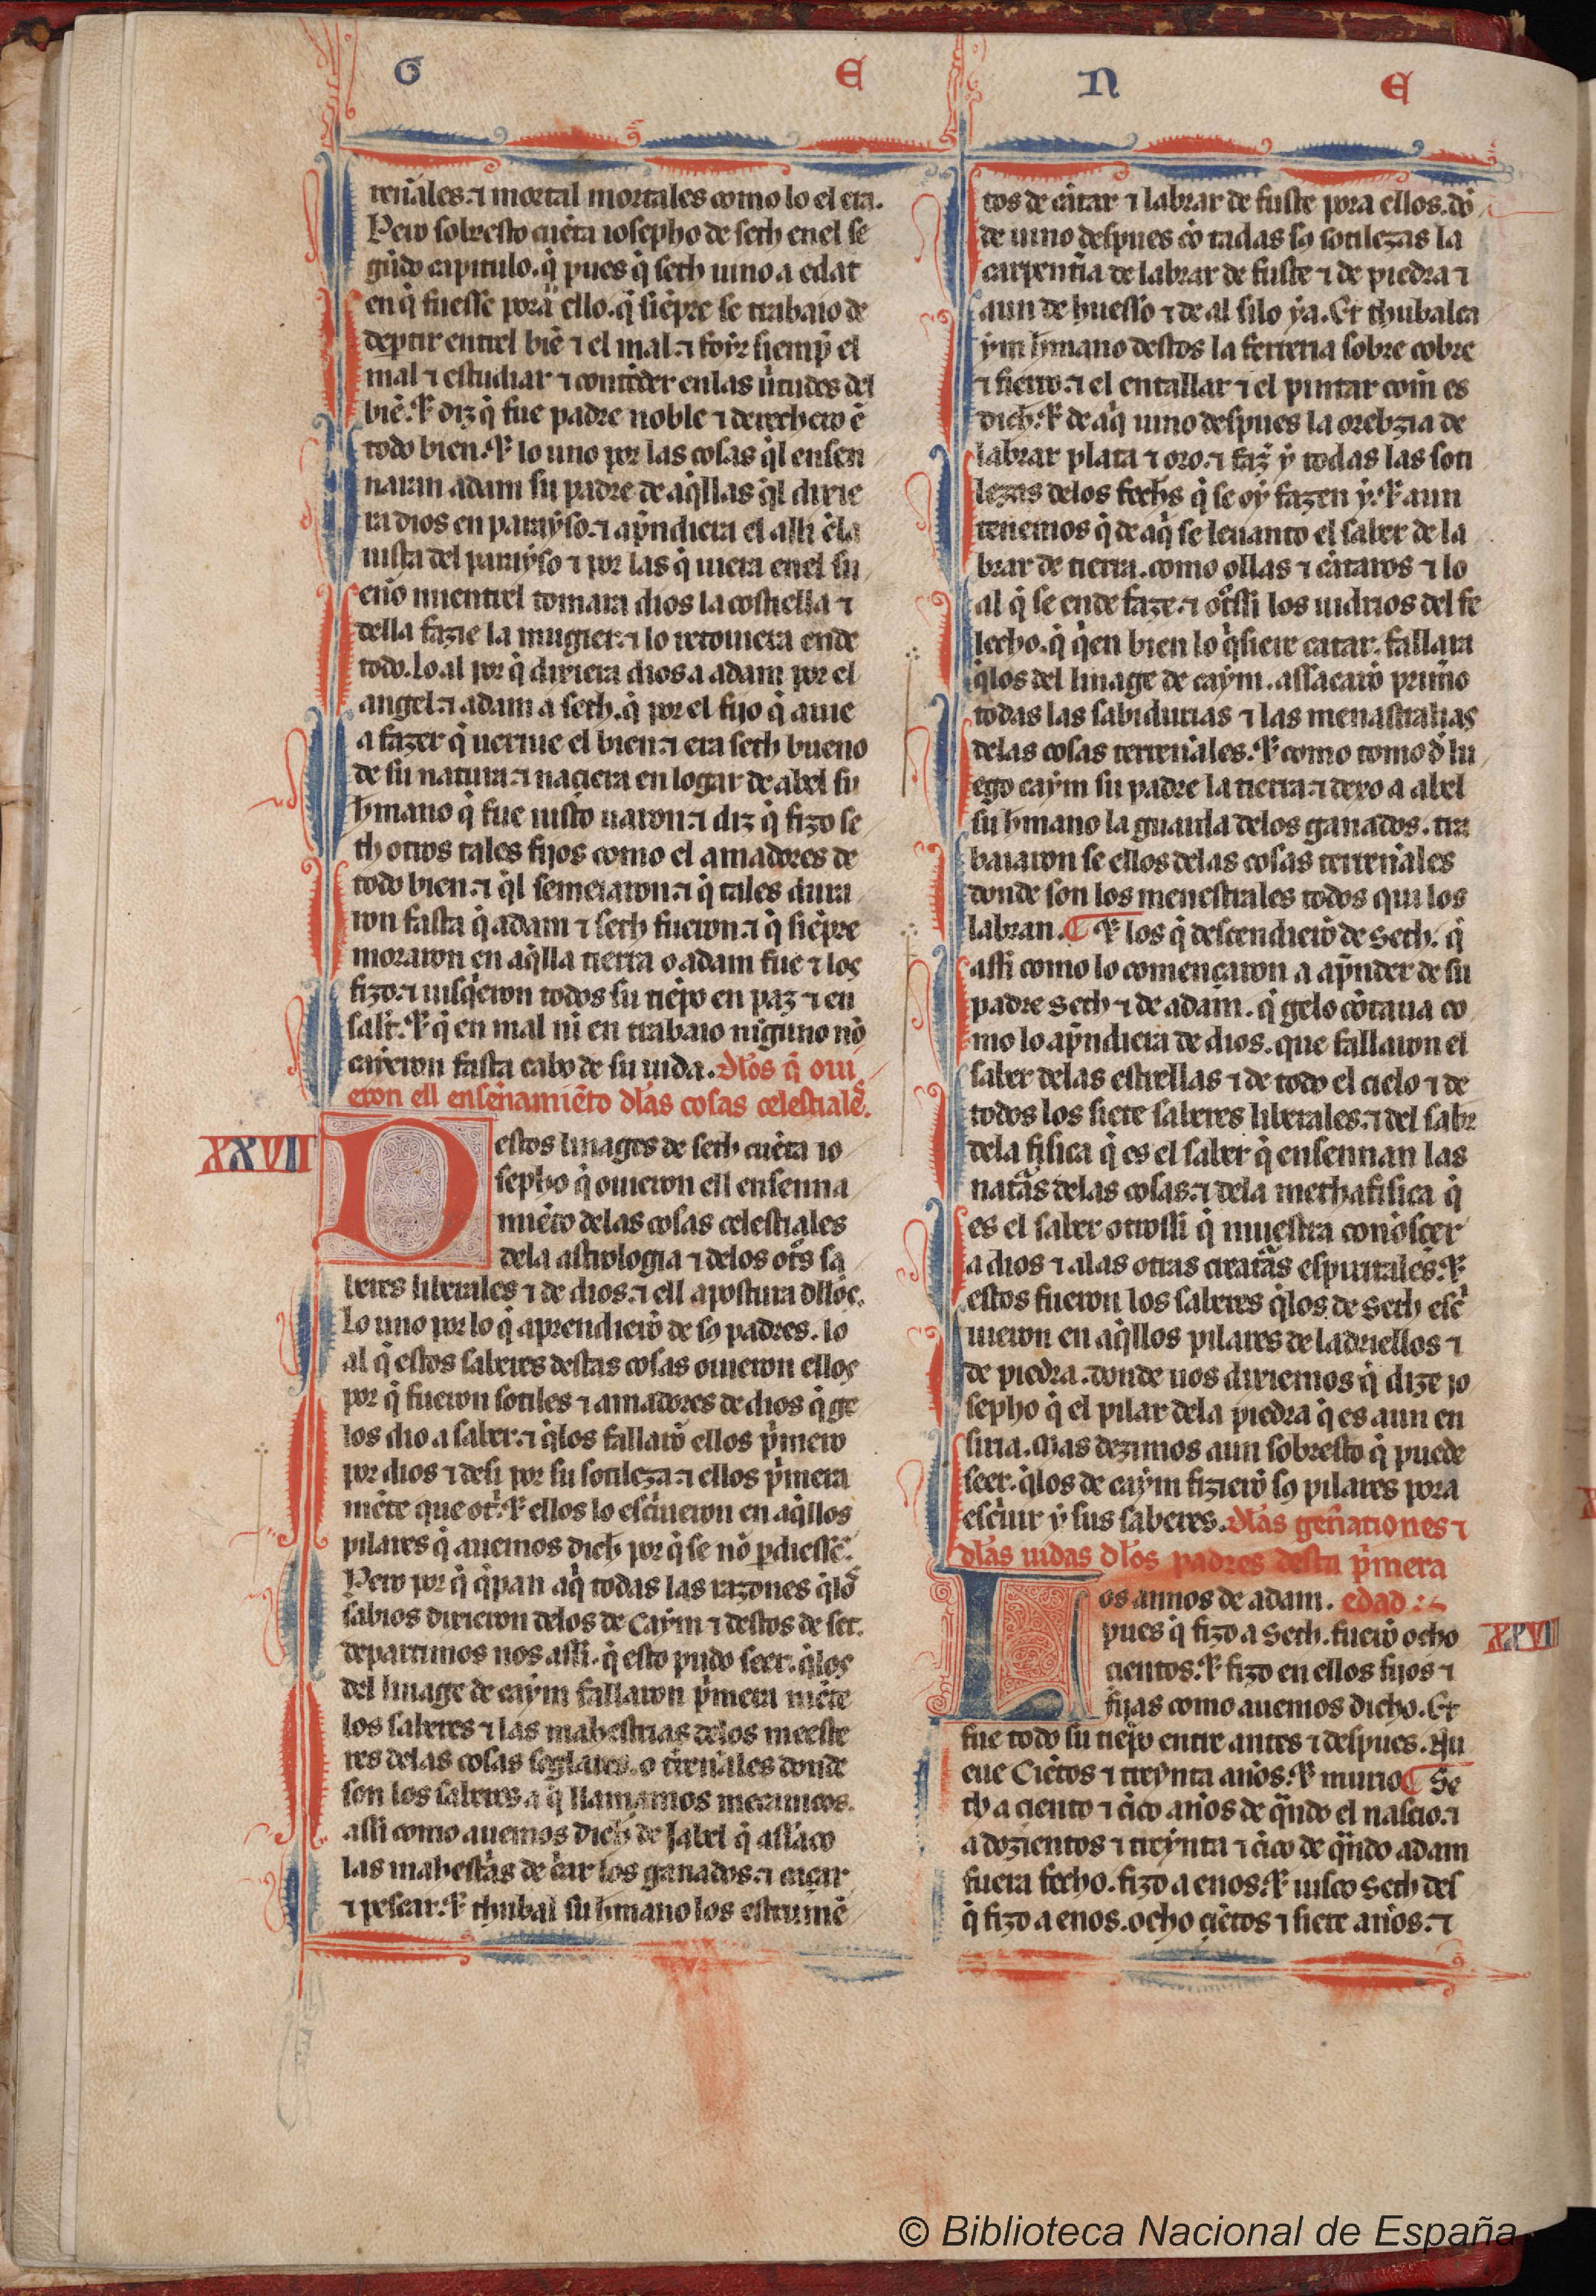 G E N E
renales. ⁊ mortal mortales como lo el era.
Pero sobresto cuẽta iosepho de seth en el se
gũdo capitulo. q̃ pues q̃ seth uino a edat
en q̃ fuesse pora ello. q̃ siẽpre se trabaio de
deptir entrel biẽ ⁊ el mal. ⁊ foyr siemp̃ el
mal ⁊ estudiar ⁊ contẽder en las ũtudes del
biẽ. ⁊ diz q̃ fue padre noble ⁊ derechero ẽ
todo bien. ⁊ lo uno por las cosas q̃l ensen
naran adam su padre de aq̃llas q̃l dixie
ra dios en parayso. ⁊ ap̃ndiera el alli ẽla
uista del parayso ⁊ por las q̃ uiera en el su
eño mientrel tomara dios la costiella ⁊
della fazie la mugier. ⁊ lo retouiera ende
todo. lo al por q̃ dixiera dios a adam por el
angel. ⁊ adam a seth. q̃ por el fijo q̃ auie
a fazer q̃ uernie el bien. ⁊ era seth bueno
de su natura. ⁊ naçiera en logar de abel su
h̃mano q̃ fue iusto uaron. ⁊ diz q̃ fizo se
th otros tales fijos como el amadores de
todo bien. ⁊ q̃l semeiaron. ⁊ q̃ tales dura
ron fasta q̃ adam ⁊ seth fueron. ⁊ q̃ siẽpre
moraron en aq̃lla tierra o adam fue ⁊ los
fizo. ⁊ uisq̃eron todos su tiẽpo en paz ⁊ en
salt̃. ⁊ q̃ en mal ni en trabaio niguno nõ
cayeron fasta cabo de su uida. dl̃os q̃ oui
eron ell enseñamiẽto dl̃as cosas celestiales.
XXVII
Destos linages de seth cuẽta io
sepho q̃ ouieron ell ensenna
miẽto delas cosas celestiales
dela astrologia ⁊ delos ot̃s sa
beres liberales ⁊ de dios. ⁊ ell apostura dllos.
Lo uno por lo q̃ aprendierõ de sos padres. lo
al q̃ estos saberes destas cosas ouieron ellos
por q̃ fueron sotiles ⁊ amadores de dios q̃ ge
los dio a saber. ⁊ q̃los fallarõ ellos p̃mero
por dios ⁊ desi por su sotileza. ⁊ ellos p̃mera
mẽte que ot̃. ⁊ ellos lo esc̃uieron en aq̃llos
pilares q̃ auemos dich̃ por q̃ se nõ pdiessẽ.
Pero por q̃ q̃pan aq̃ todas las razones q̃los
sabios dixieron delos de Caym ⁊ destos de set.
departimos nos assi. q̃ esto pudo seer. q̃los
del linage de caym fallaron p̃mera mẽte
los saberes ⁊ las mahestrias delos meeste
res delas cosas seglares. o tẽrnales donde
son los saberes a q̃ llamamos mecanicos.
assi como auemos dich̃ de Jabel q̃ assaco
las mahest̃as de c̃ar los ganados. ⁊ caçar
⁊ pescar. ⁊ thubal su h̃mano los estrumẽ
tos de cãtar ⁊ labrar de fuste pora ellos. dõ
de uino despues cõ tadas sos sotilezas la
carpent̃ia de labrar de fuste ⁊ de piedra ⁊
aun de huesso ⁊ de al silo ya. Et thubalca
ym h̃mano destos la ferreria sobre cobre
⁊ fierro. ⁊ el entallar ⁊ el pintar com̃ es
dich̃. ⁊ de aq̃ uino despues la orebzia de
labrar plata ⁊ oro. ⁊ faz̃ y todas las soti
lezas delos fech̃s q̃ se oy fazen y. ⁊ aun
tenemos q̃ de aq̃ se leuanto el saber de la
brar de tierra. como ollas ⁊ cãtaros ⁊ lo
al q̃ se ende faze. ⁊ ot̃ssi los uidrios del fe
lecho. q̃ q̃en bien lo q̃siere catar. fallara
q̃los del linage de caym. assacarõ prim̃o
todas las sabidurias ⁊ las menastralias
delas cosas terrenales. ⁊ como tomo d̃ lu
ego caym su padre la tierra. ⁊ dexo a abel
su h̃mano la guarda delos ganados. tra
baiaron se ellos delas cosas terrenales
donde son los menestrales todos qui los
labran. ⁊ los q̃ descendierõ de Seth. q̃
assi como lo començaron a ap̃nder de su
padre Seth ⁊ de adam. q̃ gelo cõtaua co
mo lo ap̃ndiera de dios. que fallaron el
saber delas estrellas ⁊ de todo el cielo ⁊ de
todos los siete saberes liberales. ⁊ del sab̃r
dela fisica q̃ es el saber q̃ ensennan las
nat̃as delas cosas. ⁊ dela methafisica q̃
es el saber otrossi q̃ muestra conosçer
a dios ⁊ alas otras creat̃as esp̃uitales. ⁊
estos fueron los saberes q̃los de Seth esc̃
uieron en aq̃llos pilares de ladriellos ⁊
de piedra. donde uos dixiemos q̃ dize Jo
sepho q̃ el pilar dela piedra q̃ es aun en
siria. Mas dezimos aun sobresto q̃ puede
seer. q̃los de caym fizierõ sos pilares pora
esc̃uir y sus saberes. dl̃as gen̄ationes ⁊
dl̃as uidas dl̃os padres desta p̃mera
Los annos de adam. edad :~
pues q̃ fizo a Seth. fuerõ ocho
XXVIII
cientos. ⁊ fizo en ellos fijos ⁊
fijas como auemos dicho. Et
fue todo su tiẽpo entre antes ⁊ despues. Nu
eue Ciẽtos ⁊ treynta anõs. ⁊ murio. Se
th a ciento ⁊ cĩco anõs de q̃ndo el nascio. ⁊
a dozientos ⁊ treynta ⁊ cĩco de q̃ndo adam
fuera fecho. fizo a enos. ⁊ uisco Seth des
q̃ fizo a enos. ocho çiẽtos ⁊ siete anõs. ⁊
© Biblioteca Nacional de España